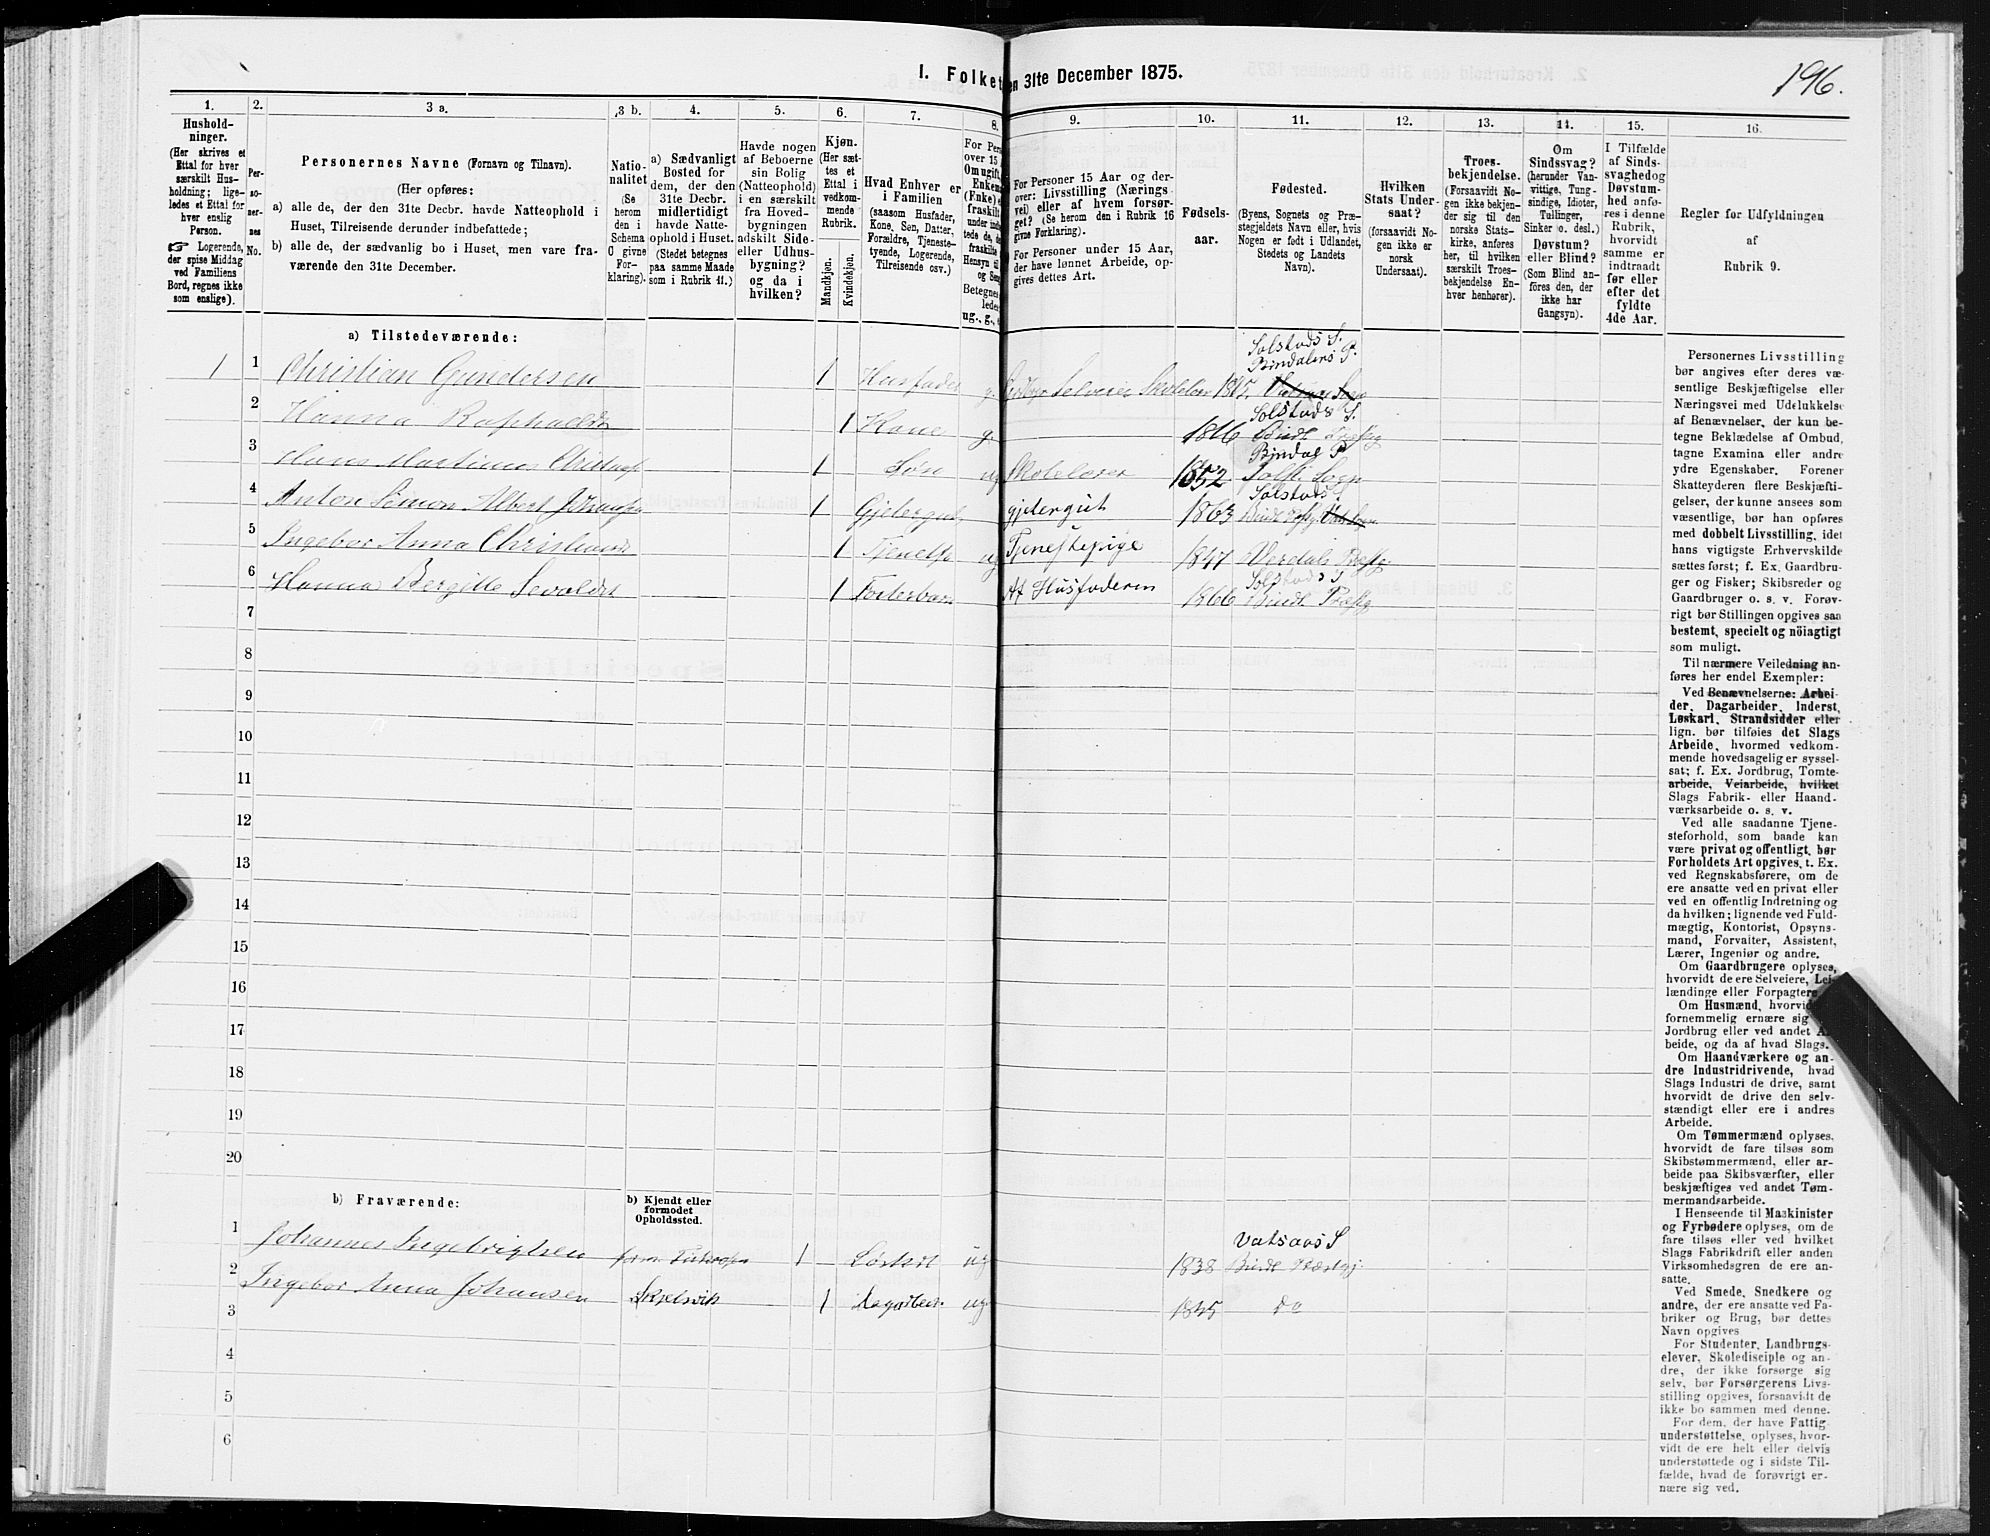 196.
I. Folket
en 31te December 1875.
1.
2.
3 a.
3 b.
4.
5.
6.
7.
8.
9.
10.
11.
12.
13.
14.
15.
16.
Hushold-
ninger.
(Her skrives et
Ettal for hver
særskilt Hus-
holdning; lige-
ledes et Ettal for
hver enslig
Person.
☞ Logerende,
der spise Middag
ved Familiens
Bord, regnes ikke
som enslige).
Per-
so-
ner-
nes
No.
Personernes Navne (Fornavn og Tilnavn).
(Her opføres:
a) alle de, der den 31te Decbr. havde Natteophold i
Huset, Tilreisende derunder indbefattede;
b) alle de, der sædvanlig bo i Huset, men vare fra-
værende den 31te December.
Natio-
nalitet
(Se
herom
den i
Schema
O givne
For-
klaring).
a) Sædvanligt
Bosted for
dem, der den
31te Decbr.
midlertidigt
havde Natte-
ophold i Huset.
(Stedet betegnes
paa samme Maade
som i Rubrik 11.)
Havde nogen
af Beboerne
sin Bolig
(Natteophold)
i en særskilt
fra Hoved-
bygningen
adskilt Side-
eller Udhus-
bygning?
og da i
hvilken?
Kjøn.
(Her sæt-
tes et
Ettal i
vedkom-
mende
Rubrik.
Mandkjøn.
Kvindekjøn.
Hvad Enhver er
i Familien
(saasom Husfader,
Kone, Søn, Datter,
Forældre, Tjeneste-
tyende, Logerende,
Tilreisende osv.)
For Pers
over 15 A
Om ugift,
Enkem
(Enke) e
fraskilt
under indb
tede de, de
fraskilte
Hensyn til
og Sen
Betegnes
ledes
ug., g., e
For Personer 15 Aar og der-
over: Livsstilling (Nærings-
vei) eller af hvem forsør-
get? (Se herom den i Rubrik 16
givne Forklaring).
For Personer under 15 Aar,
der have lønnet Arbeide, op-
gives dettes Art.
Fødsels-
aar.
Fødested.
(Byens, Sognets og Præ-
stegjeldets Navn eller, hvis
Nogen er født i Udlandet,
Stedets og Landets
Navn).
Hvilken
Stats Under-
saat?
(forsaavidt No-
gen ikke er
norsk
Undersaat).
Troes-
bekjendelse.
(Forsaavidt No-
gen ikke bekjen-
der sig til den
norske Stats-
kirke, anføres
her, til hvilken
særskilt Troes-
bekjendelse En-
hver henhører).
Om
Sindssvag?
(herunder Van-
vittige, Tung-
sindige, Idioter,
Tullinger,
Sinker o. desl.)
Døvstum?
eller Blind?
(Som Blind an-
føres den, der
ikke har
Gangsyn).
I Tilfælde
af Sinds-
svaghed og
Døvstum-
hed anfø-
res i denne
Rubrik,
hvorvidt
samme er
indtraadt
før eller
efter det
fyldte
4de Aar.
Regler for Udfyldningen
af
Rubrik 9.
a) Tilstedeværende:
1 1 Christian Gundersen 1 Husfader g. Selveier Skolelær 1815 Solstads S. Bindalens P.
2 Hanna 1 Kone g. 1816 Solstads S. Bindl Præstg
3 Hans Martinus 1 Søn ug Skolelærer 1852 Bindal P. Solst. Sogn
4 Anton Simon Albert 1 Gjetergut gjetergut 1863 Solstads S. Bindl
5 Ingebor Anna 1 ug Tjenestepige 1847 Verdals Præstg
6 Hanna Bergitte 1 Fosterbarn Af Husfaderen 1866 Solstads S Bindl Præstg
7
8
9
10
11
12
13
14
15
16
17
18
19
20
b) Fraværende:
b) Kjendt eller
formodet
Opholdssted.
1 Johannes Ingebrigtsen 1 ug 1838 Vatsaas S Bindl Præstgj
2 Ingebor Anna Johansen 1 ug 1845 do
3
4
5
6
Personernes Livsstilling
bør angives efter deres væ-
sentlige Beskjæftigelse eller
Næringsvei med Udelukkelse
af Benævnelser, der kun be-
tegne Beklædelse af Ombud,
tagne Examina eller andre
ydre Egenskaber. Forener
Skatteyderen flere Beskjæfti-
gelser, der kunne ansees som
væsentlige, bør han opføres
med dobbelt Livsstilling, idet
hans vigtigste Erhvervskilde
sættes først; f. Ex. Gaardbru-
ger og Fisker; Skibsreder og
Gaardbruger o. s. v. Forøv-
rigt bør Stillingen opgives saa
bestemt, specielt og nöiagtigt
som muligt.
Til nærmere Veiledning an-
føres her endel Exempler:
Ved Benævnelserne: Arbei-
der, Dagarbeider, Inderst,
Løskarl, Strandsidder eller
lign. bør tilføies det Slags
Arbeide, hvormed vedkom-
mende hovedsagelig er syssel-
sat; f. Ex. Jordbrug, Tomte-
arbeide, Veiarbeide, hvilket
Slags Fabrik- eller Haand-
værksarbeide o. s. v.
Ved alle saadanne Tjene-
steforhold, som baade kan
være privat og offentligt, bør
Forholdets Art opgives, t. Ex.
ved Regnskabsførere, om de
ere ansatte ved en privat eller
ved en offentlig Indretning og
da hvilken; lignende ved Fuld-
mægtig, Kontorist, Opsyns-
mand, Forvalter, Assistent,
Lærer, Ingeniør og andre.
Om Gaardbrugere oplyses,
hvorvidt de ere Selveiere, Lei-
lændinge eller Forpagtere.
Om Husmænd, hvorvidt
fornemmelig ernære sig
Jordbrug eller ved andet Ar-
beide, og da af hvad Slags.
Om Haandværkere og an-
dre Industridrivende, hvad
Slags Industri de drive, samt
hvorvidt de drive den selv-
stændigt eller ere i andres
Arbeide.
Om Tømmermænd oplyses,
hvorvidt de fare tilsøs som
Skibstømmermænd, eller ar-
beide paa Skibsværfter, eller
beskjæftiges ved andet Tøm-
mermandsarbeide.
I Henseende til Maskinister
og Fyrbødere oplyses, om de
fare tilsøs eller ved hvilket
Slags Fabrikdrift eller anden
Virksomhedsgren de ere an-
satte.
Ved Smede, Snedkere og
andre, der ere ansatte ved Fa-
briker og Brug, bør dettes
Navn opgives
For Studenter, Landbrugs-
elever, Skoledisciple og an-
dre, der ikke forsørge sig
selv, bør Forsørgerens Livs-
stilling opgives, forsaavidt de
ikke bo sammen med denne.
For dem, der have Fattig-
understøttelse, oplyses, hvor-
vidt de ere helt eller delvis
understøttede og i sidste Til-
fælde, hvad de forøvrigt er-
nære sig ved.